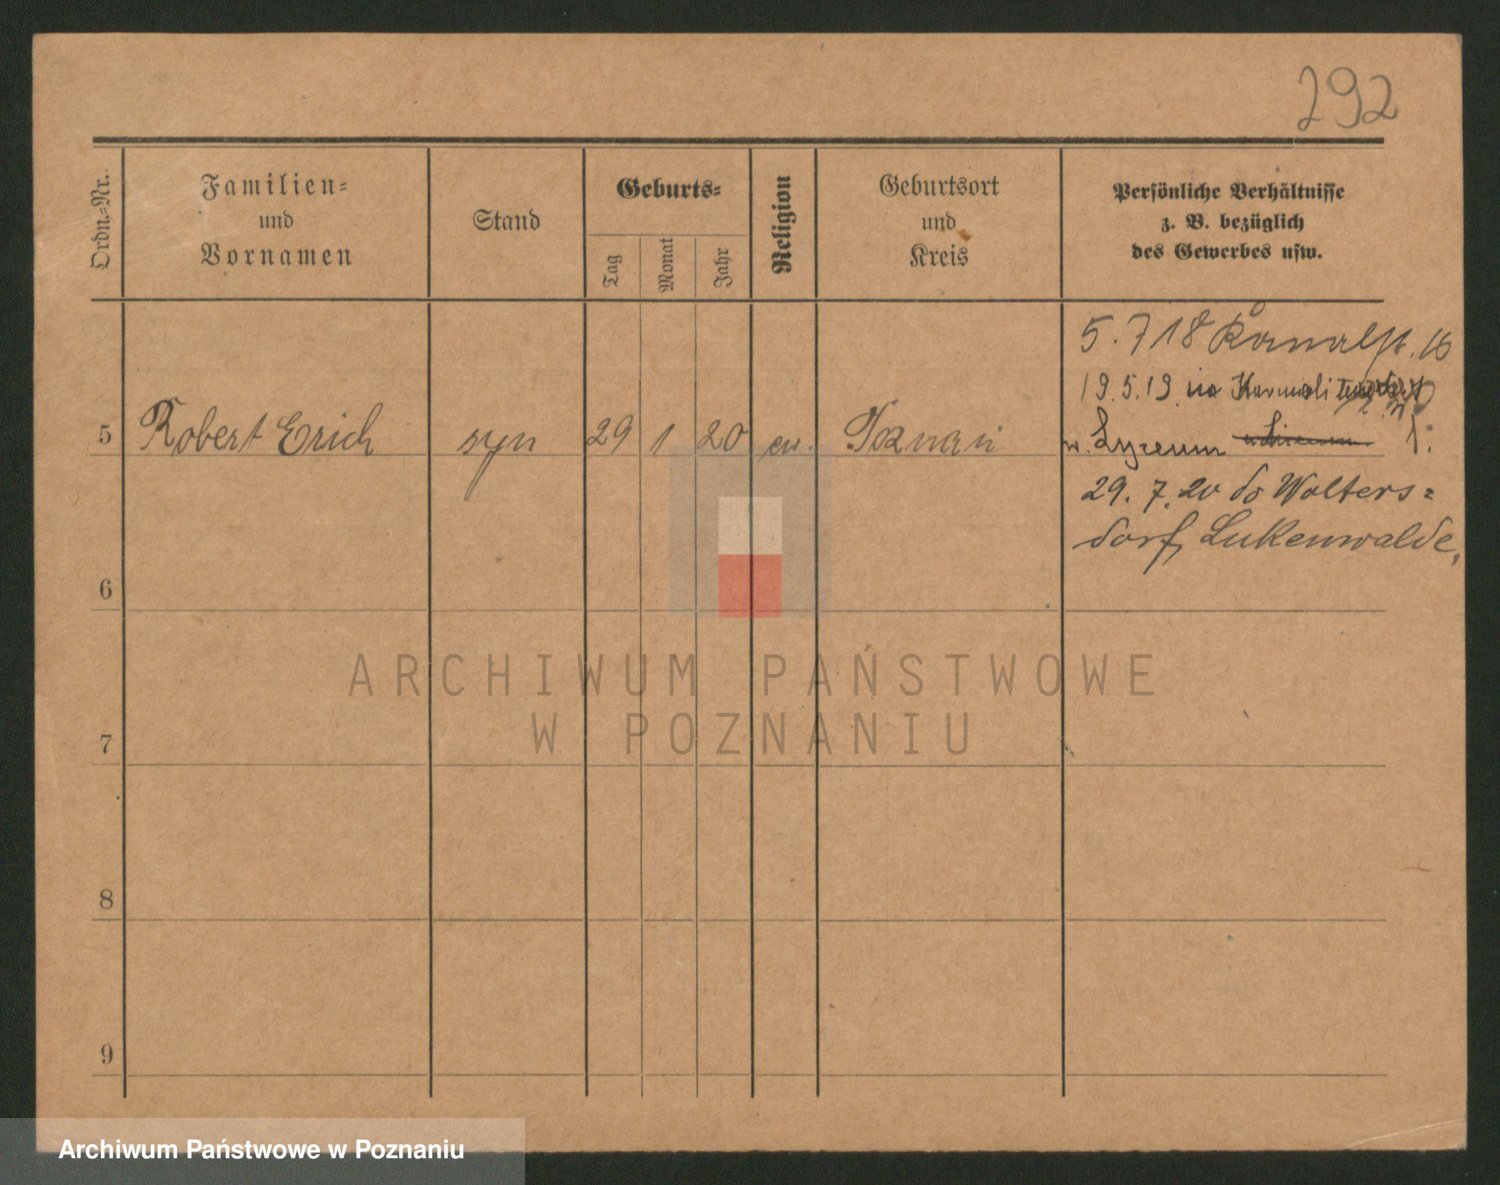 292
Ordn.=Nr.
Familien=
und
Vornamen
Stand
Geburts=
Tag
Monat
Jahr
Religion
Geburtsort
und
Kreis
Persönliche Verhältnisse
z. B. bezüglich
des Gewerbes usw.
5. 7 18 16
19.5.19
5 Robert Erich syn 29 1 20 ew. Poznań
w. Lyzeum
29. 7. 20 do Wolters=
dorf, Lukenwalde,
6
7
8
9
ARCHIWUM PAŃSTWOWE
W POZNANIU
Archiwum Państwowe w Poznaniu